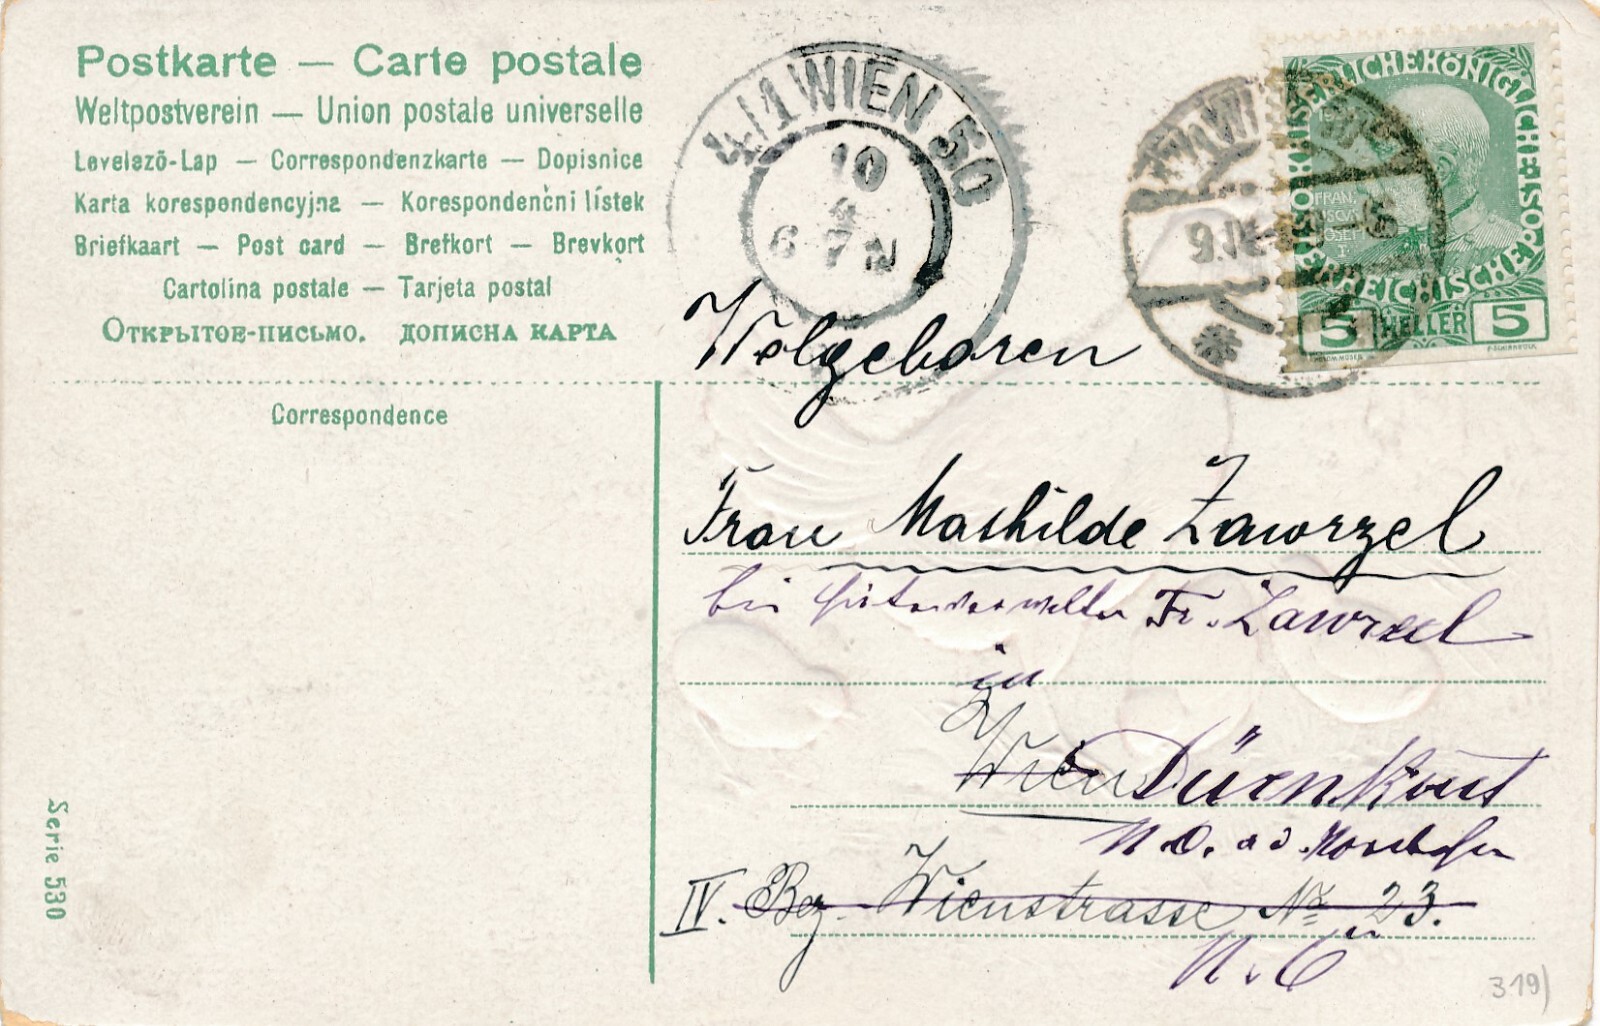 Postkarte — Carte postale
Weltpostverein — Union postale universelle
Levelező-Lap — Correspondenzkarte — Dopisnice
Karta korespondencyjna — Korespondenčni lístek
Briefkaart — Post card — Brefkort — Brevkort
Cartolina postale — Tarjeta postal
Открытое-письмо. дописна карта
Correspondence
4/1 WIEN 50
10
6-7N
9.IV
KAISERLICHEKÖNIGLICHE POST
ÖSTERREICHISCHE
5 HELLER 5
Wolgeboren
Frau Mathilde Zawrzel
bei Gutsverwalter Fr. Zawrzel
in
Wien Dürnkrut
N.Ö. a d Nordbahn
IV. Bez. Wienstrasse No 23.
Serie 530
319)